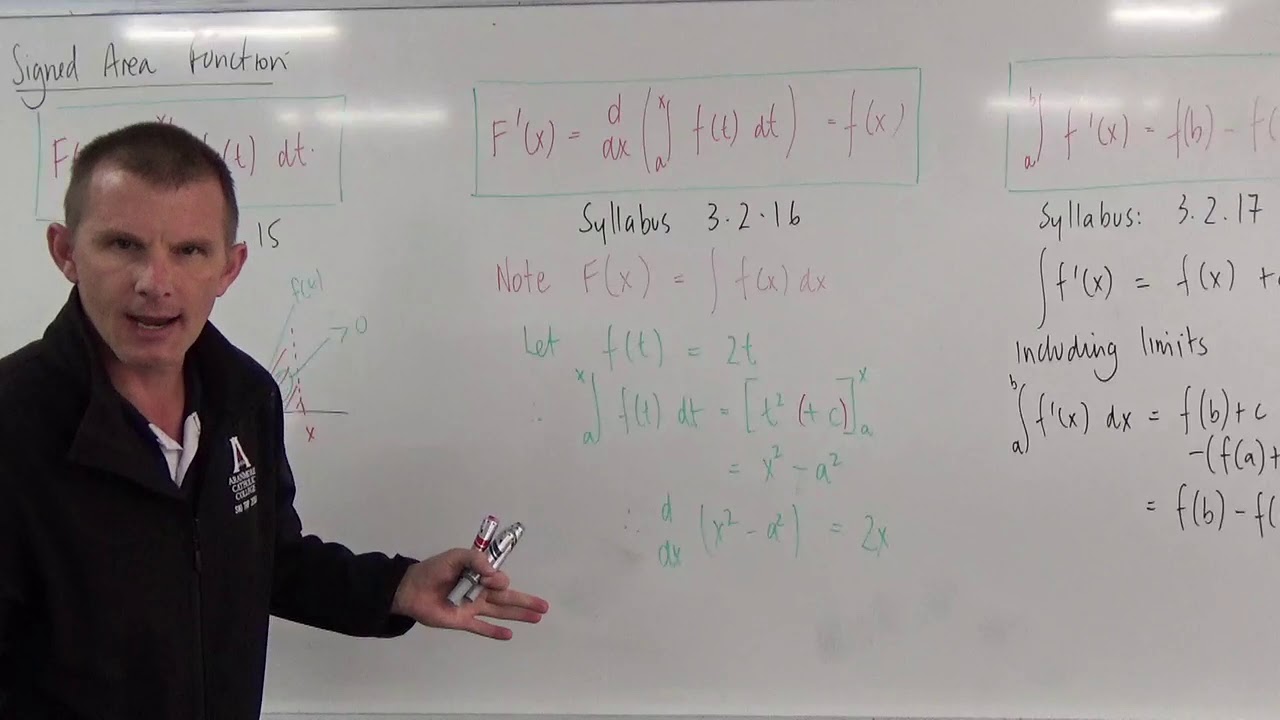 Signed Area Function
F(t) dt.
15
f(x)
0
x
F'(x) = d/dx (∫ₐˣ f(t) dt) = f(x)
Syllabus 3.2.16
Note F(x) = ∫ f(x) dx
Let f(t) = 2t
∴ ∫ₐˣ f(t) dt = [t² (+ c)]ₐˣ
= x² - a²
∴ d/dx (x² - a²) = 2x
∫ₐᵇ f'(x) = f(b) - f(
Syllabus: 3.2.17
∫ f'(x) = f(x) +
Including limits
∫ₐᵇ f'(x) dx = f(b) + c
-(f(a)+
= f(b) - f(
ARANMORE
CATHOLIC
COLLEGE